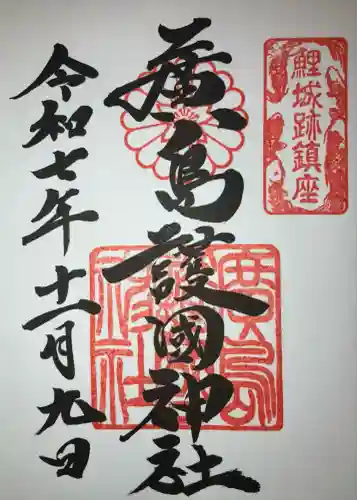 鯉城跡鎮座
廣島護國神社
令和七年十一月九日
廣島護國神社